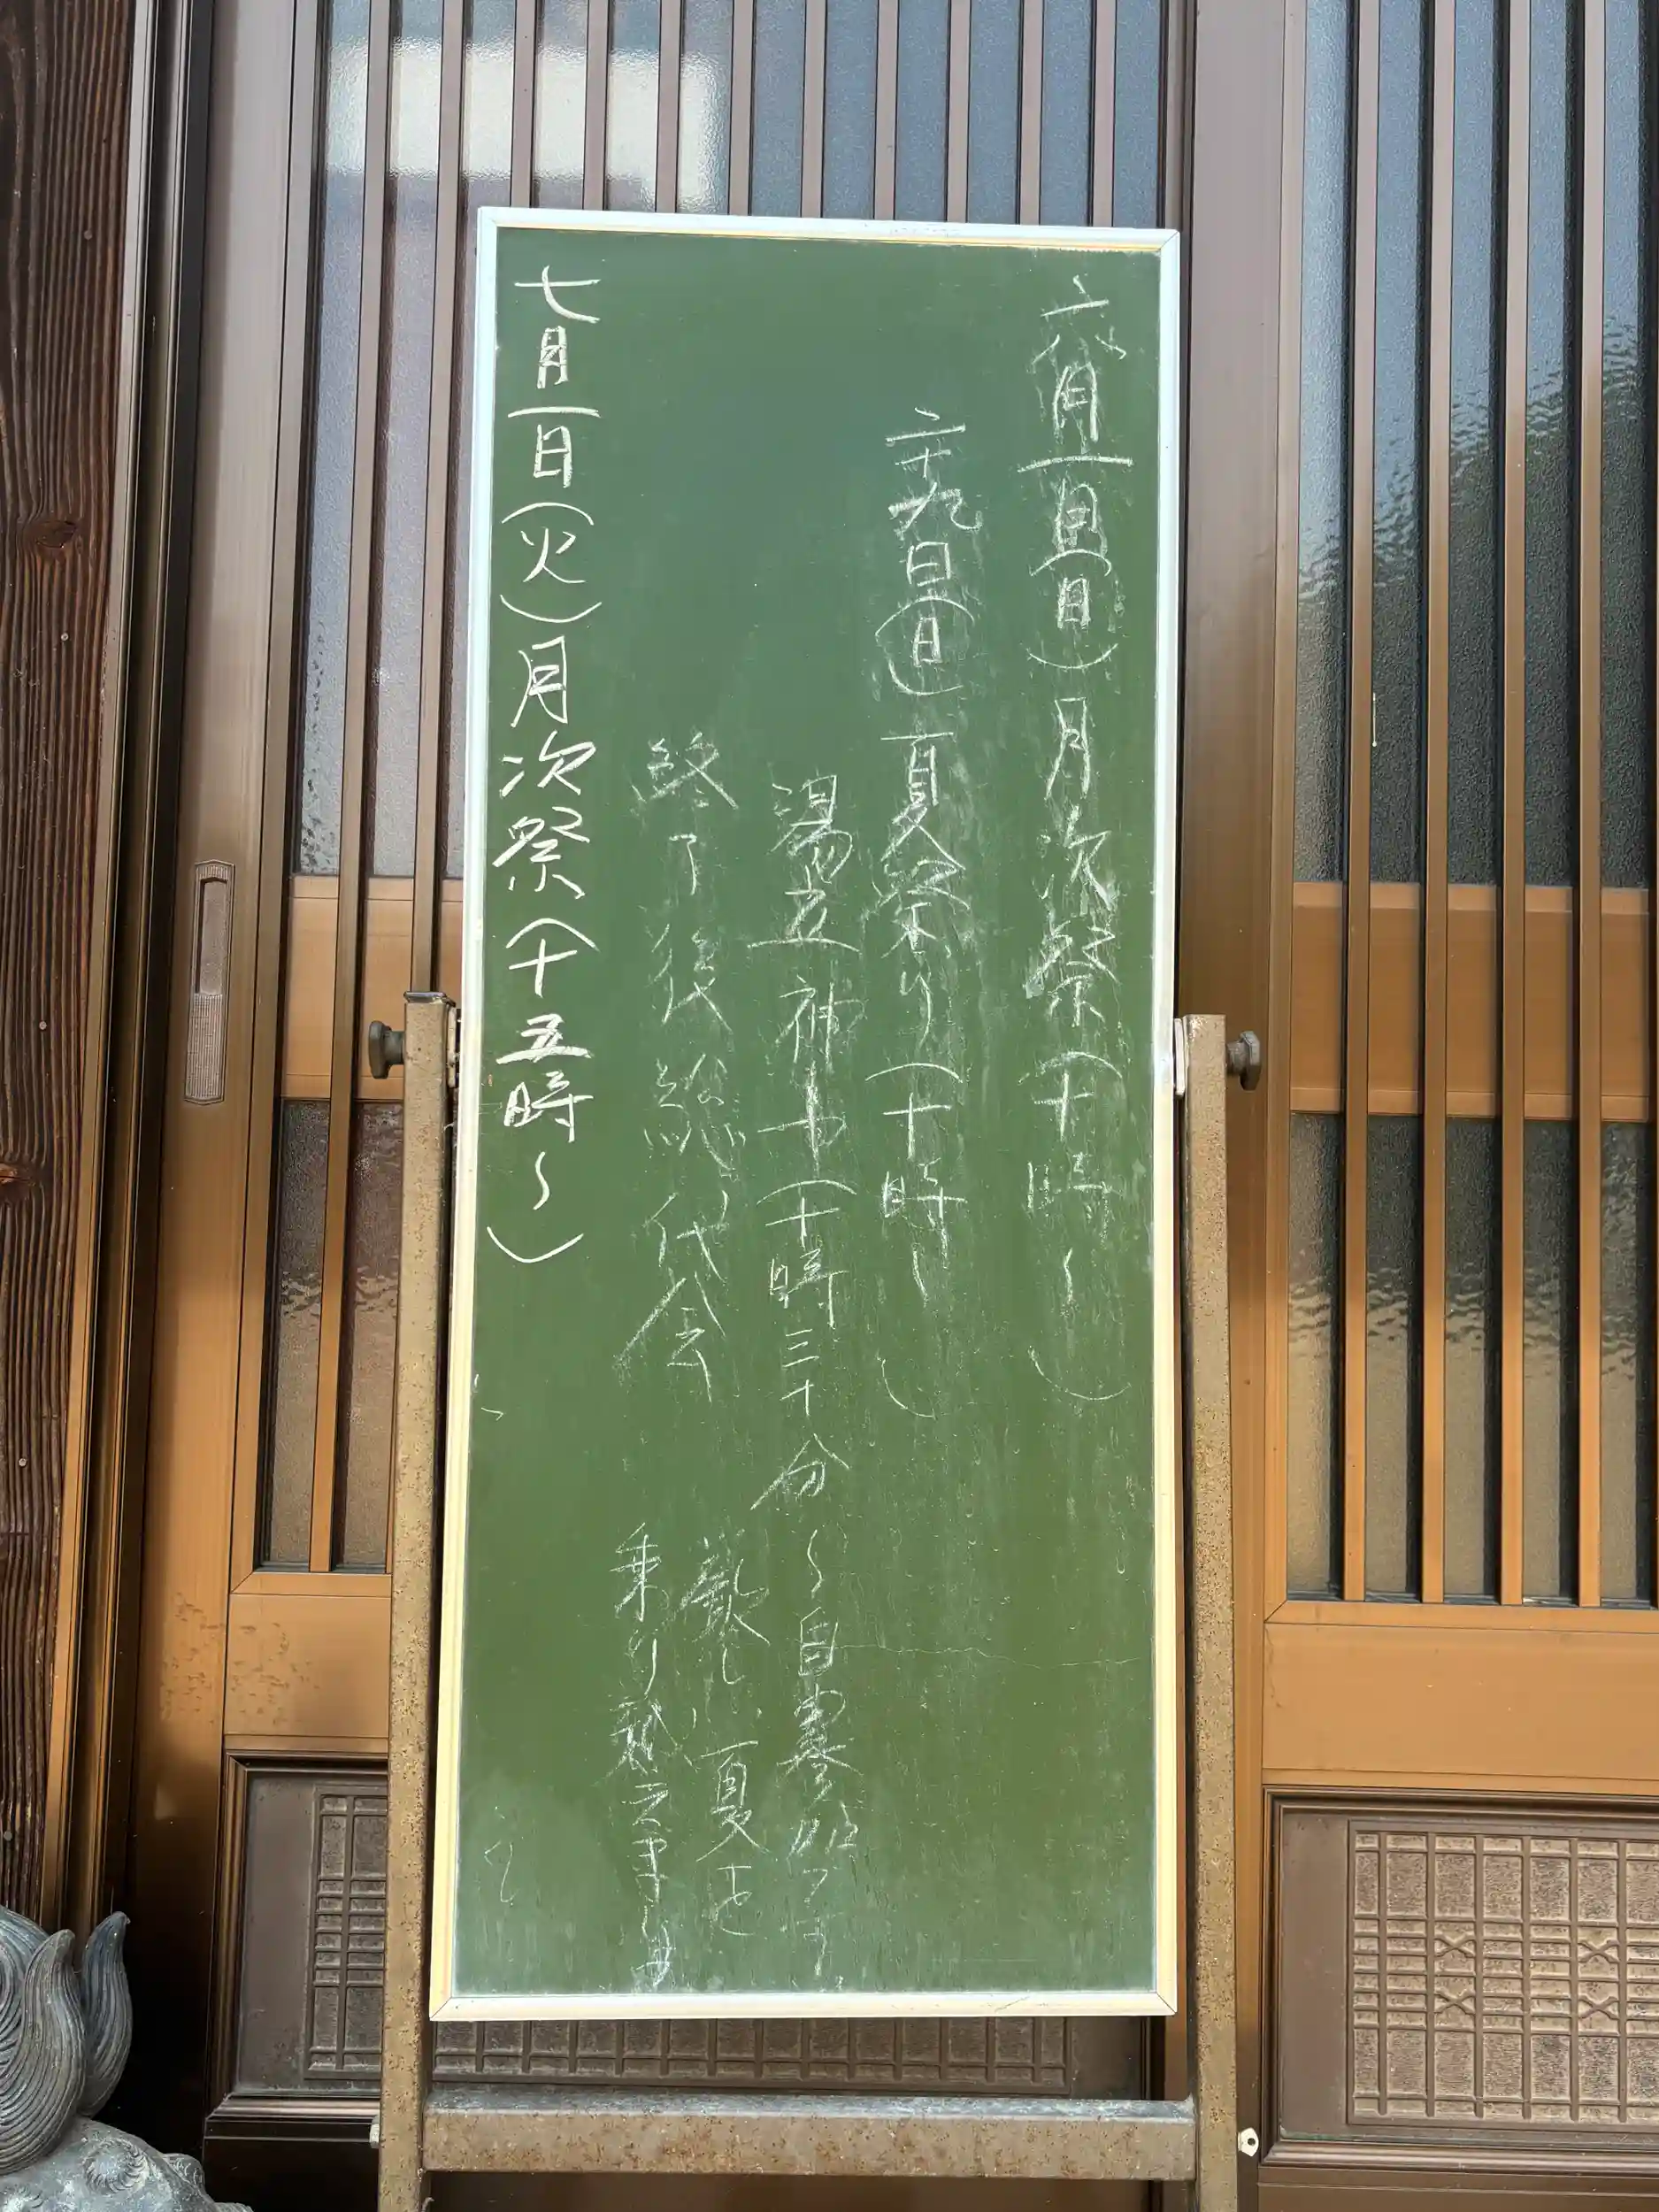 六月一日(日)月次祭(十時〜)
二十九日(日)夏祭り(十時〜)
湯立神十(十時三十分〜自
終了後総代会
厳しい夏を
乗り越えま
七月一日(火)月次祭(十五時〜)